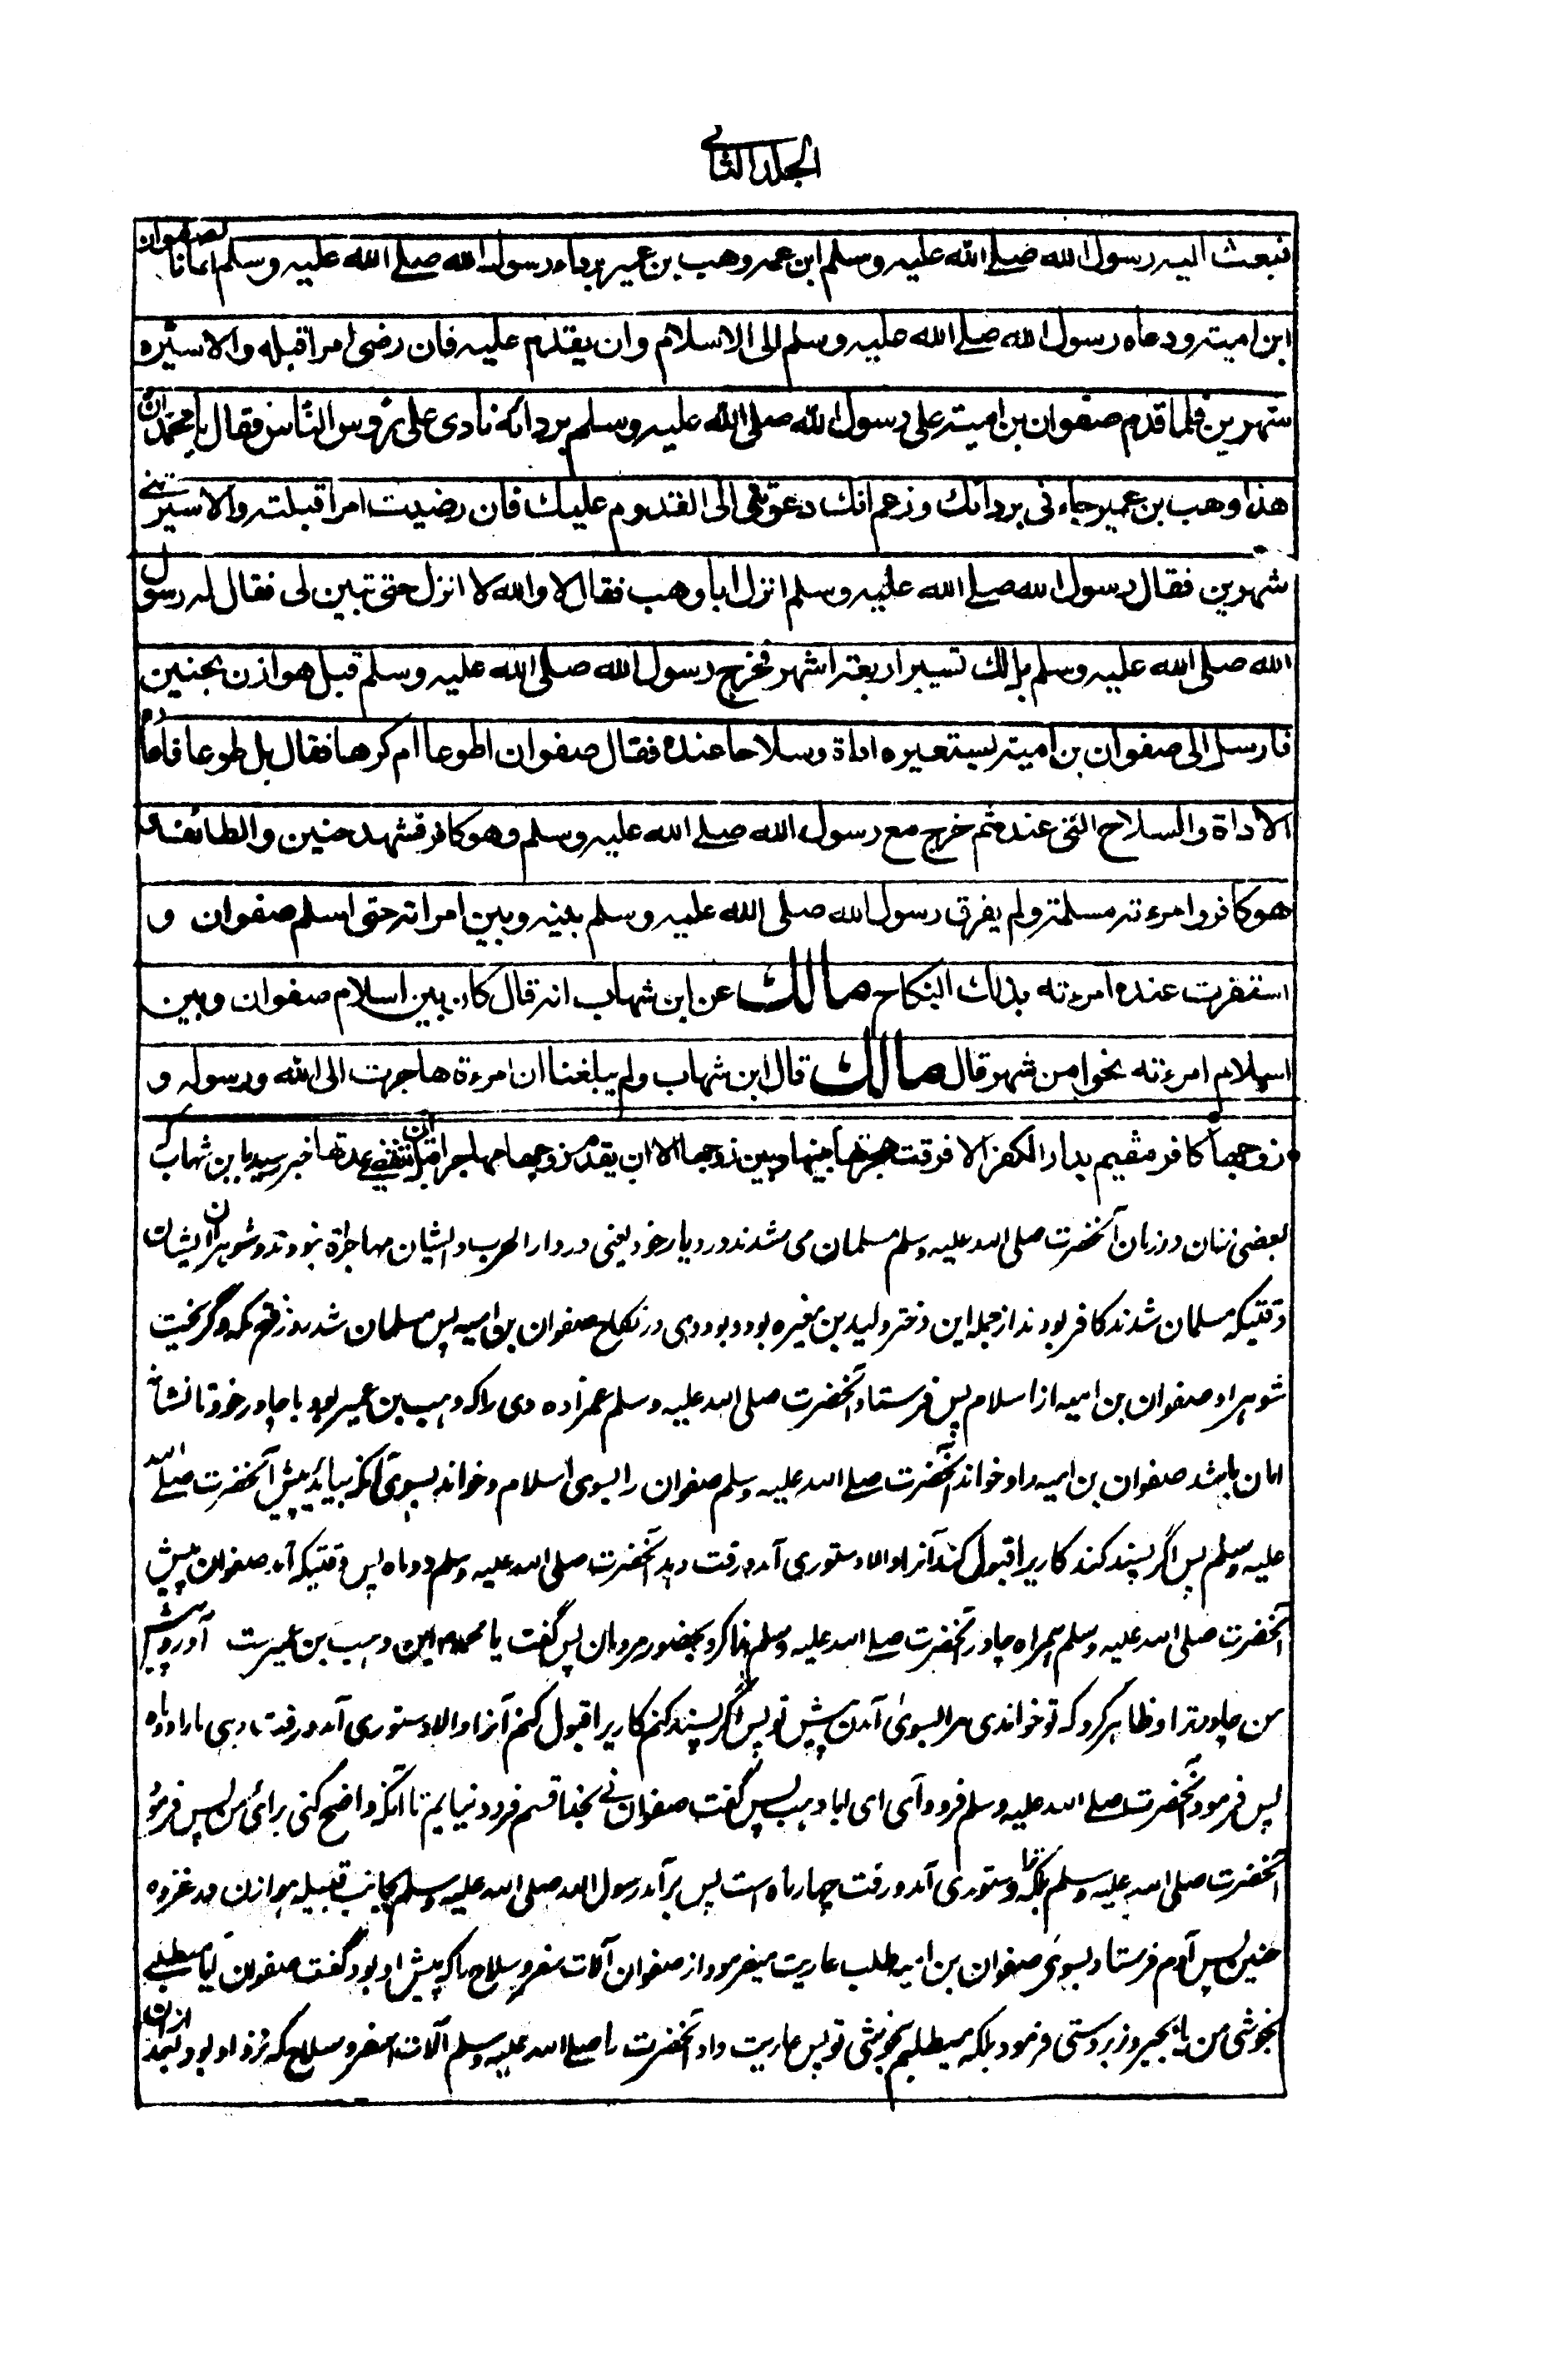 الجلد الثانی
فبعث الیہ رسول اللہ صلے اللہ علیہ وسلم ابن عمہ وهب بن عمیر برداء رسول اللہ صلے اللہ علیہ وسلم امانا لصفوان
ابن امیۃ ودعاہ رسول اللہ صلے اللہ علیہ وسلم الی الاسلام وان یقدم علیہ فان رضی امرا قبلہ والا سیّرہ
شہرین فلما قدم صفوان بن امیۃ علی رسول اللہ صلی اللہ علیہ وسلم بردائہ نادی علی رؤس النّاس فقال یا محمد ان
هذا وهب بن عمیر جاءنی بردائك وزعم انك دعوتنی الی القدوم علیك فان رضیت امرا قبلتہ والا سیرتنے
شہرین فقال رسول اللہ صلے اللہ علیہ وسلم انزل ابا وهب فقال لا واللہ لا انزل حتی تبین لی فقال لہ رسول
اللہ صلی اللہ علیہ وسلم بل لك تسییر اربعۃ اشہر فخرج رسول اللہ صلی اللہ علیہ وسلم قبل هوازن بحنین
فارسل الی صفوان بن امیۃ یستعیرہ اداۃ وسلاحا عندہ فقال صفوان اطوعا ام کرها فقال بل طوعا فاعارہ
الاداۃ والسلاح التی عندہ ثم خرج مع رسول اللہ صلے اللہ علیہ وسلم وهو کافر فشہد حنین والطائف و
هو کافر وامرءتہ مسلمۃ ولم یفرق رسول اللہ صلی اللہ علیہ وسلم بینہ وبین امراتہ حتی اسلم صفوان و
استقرت عندہ امرءتہ بذلك النکاح مالك عن ابن شہاب انہ قال کان بین اسلام صفوان وبین
اسلام امرءتہ نحوا من شہر قال مالك قال ابن شہاب ولم یبلغنا ان امرءۃ هاجرت الی اللہ ورسولہ و
زوجها کافر مقیم بدار الکفر الا فرقت هجرتها بینها وبین زوجها الا ان یقدم زوجها مهاجرا قبل ان تنقضے عدتها خبر رسید بابن شہاب کہ
بعضی زنان در زمان آنحضرت صلی اللہ علیہ وسلم مسلمان می شدند در دیار خود یعنی در دار الحرب وایشان مہاجرہ نبودند وشوہران ایشان
وقتیکہ مسلمان شدند کافر بودند از جملہ این دختر ولید بن مغیرہ بود وبود وی در نکاح صفوان بن امیہ پس مسلمان شد روز فتح مکہ وگریخت
شوہر او صفوان بن امیہ از اسلام پس فرستاد آنحضرت صلی اللہ علیہ وسلم عمزادہ وی را کہ وہب بن عمیر بود با چادر خود تا نشانہ
امان باشد صفوان بن امیہ را وخواند آنحضرت صلے اللہ علیہ وسلم صفوان را بسوی اسلام وخواند بسوی آنکہ بیاید پیش آنحضرت صلے اللہ
علیہ وسلم پس اگر پسند کند کاریرا قبول کند آنرا والا دستوری آمد ورفت دہد آنحضرت صلی اللہ علیہ وسلم دو ماہ پس وقتیکہ آمد صفوان پیش
آنحضرت صلی اللہ علیہ وسلم ہمراہ چادر آنحضرت صلے اللہ علیہ وسلم ندا کرد بحضور مردمان پس گفت یا محمد این وہب بن عمیرست آورد پیش
من چادر ترا وظاہر کرد کہ تو خواندی مرا بسوی آمدن پیش تو پس اگر پسند کنم کاریرا قبول کنم آنرا والا دستوری آمد ورفت دہی مارا دو ماہ
پس فرمود آنحضرت صلے اللہ علیہ وسلم فرود آی ای ابا وہب پس گفت صفوان نے بخدا قسم فرود نیایم تا آنکہ واضح کنی برای من پس فرمود
آنحضرت صلی اللہ علیہ وسلم بلکہ ترا دستوری آمد ورفت چہار ماہ است پس برآمد رسول اللہ صلی اللہ علیہ وسلم بجانب قبیلہ ہوازن در غزوہ
حنین پس آدم فرستاد بسوی صفوان بن امیہ طلب عاریت میفرمود از صفوان آلات سفر وسلاح را کہ پیش او بود گفت صفوان آیا میطلبے
بخوشی من یا بجبر وزبردستی فرمود بلکہ میطلبم بخوشی تو پس عاریت داد آنحضرت را صلے اللہ علیہ وسلم آلات سفر وسلاح کہ نزد او بود بعد ازان